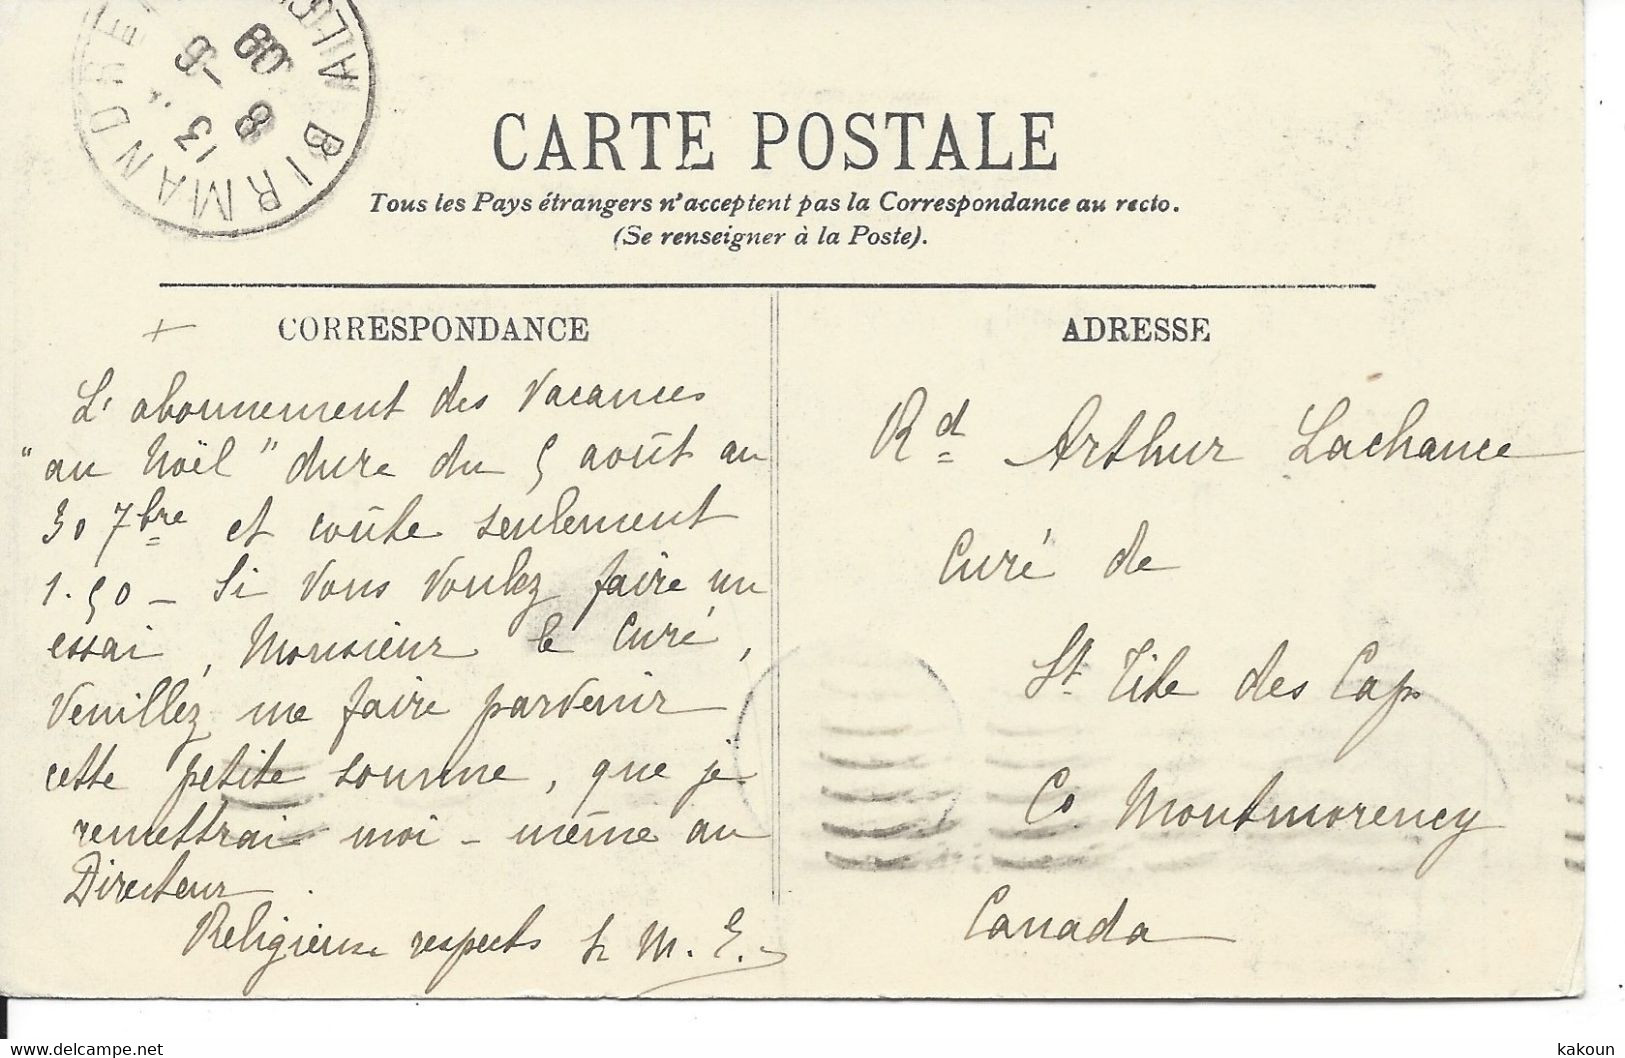 BIRMANDREIS ALGER
13 8 -6 09
CARTE POSTALE
Tous les Pays étrangers n'acceptent pas la Correspondance au recto.
(Se renseigner à la Poste).
CORRESPONDANCE
L'abonnement des Vacances
"au Noël" dure du 5 août au
30 7bre et coûte seulement
1.50 - Si vous voulez faire un
essai, Monsieur le Curé,
Veuillez me faire parvenir
cette petite somme, que je
remettrai moi-même au
Directeur.
Religieux respects Sr M. E.
ADRESSE
Rd Arthur Lachance
Curé de
St Tite des Caps
Co Montmorency
Canada
https://www.delcampe.net
kakoun